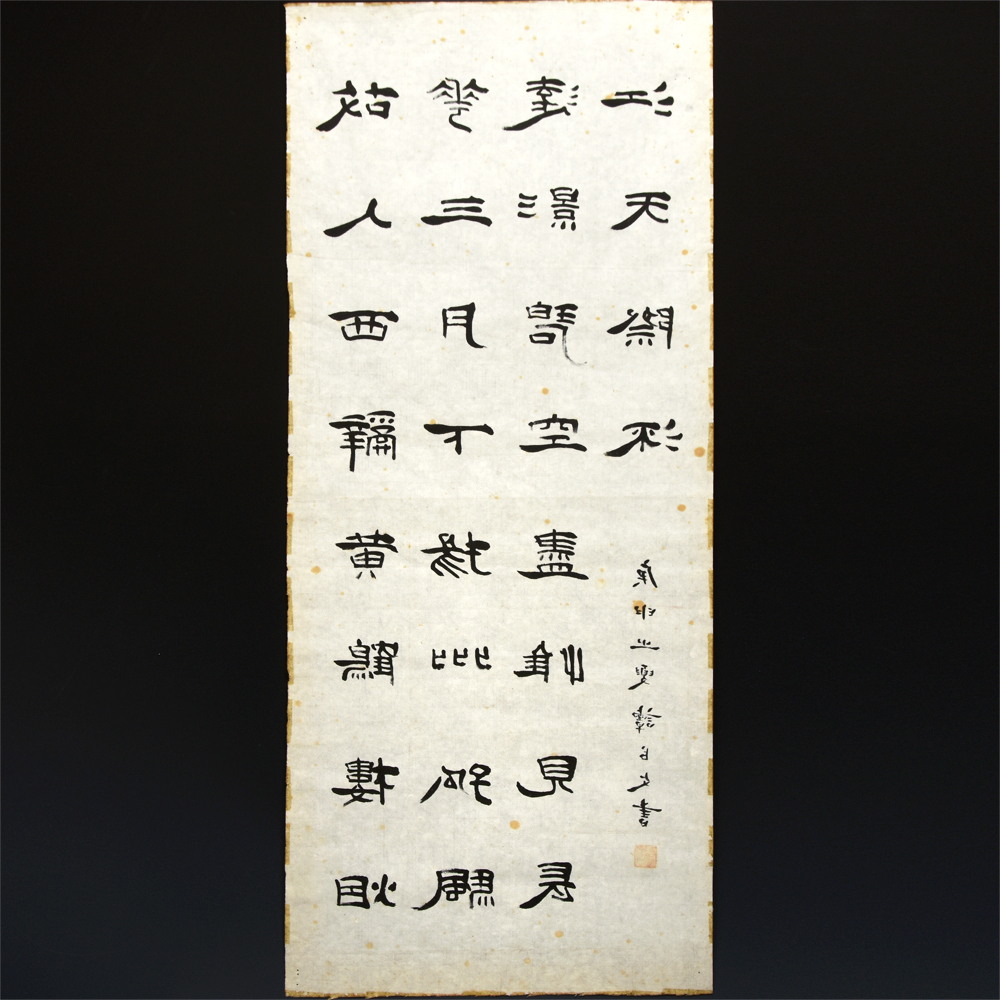 故人西辭黃鶴樓烟
華三月下揚州孤帆
遠影碧空盡惟見長
江天際流
庚 之夏譚以文書